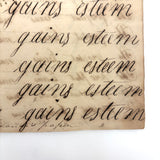 gains esteem
gains esteem
gains esteem
gains esteem
gains esteem